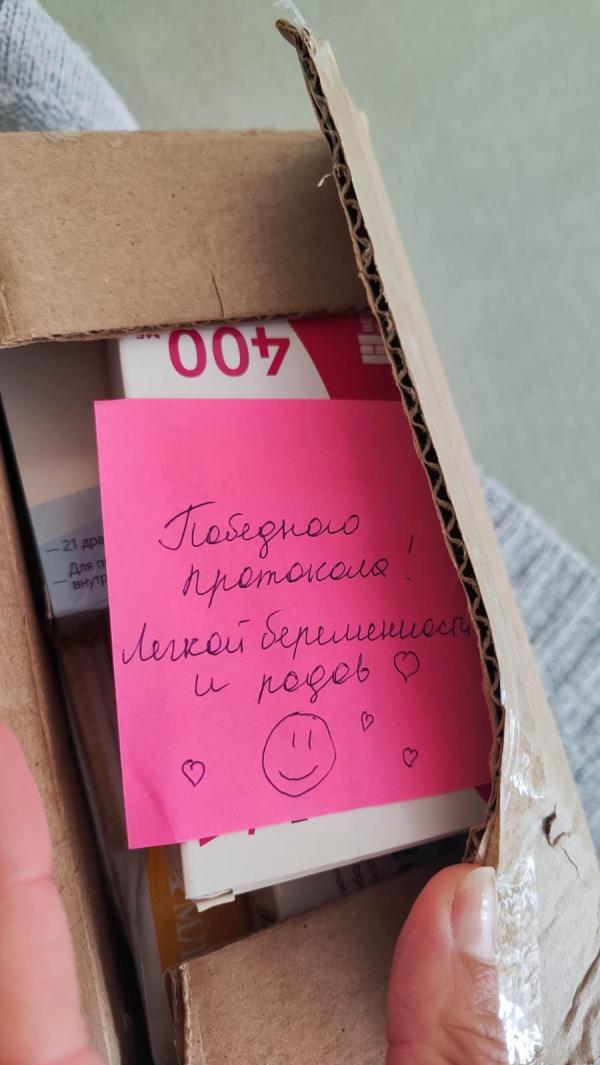 400 МЕ
— 21 дра
— Для п
внутр
Победного
протокола!
Легкой беременности
и родов ♡